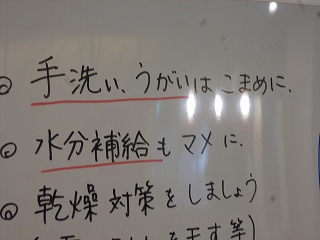 ◎ 手洗い、うがいはこまめに、
◎ 水分補給もマメに、
◎ 乾燥対策をしましょう